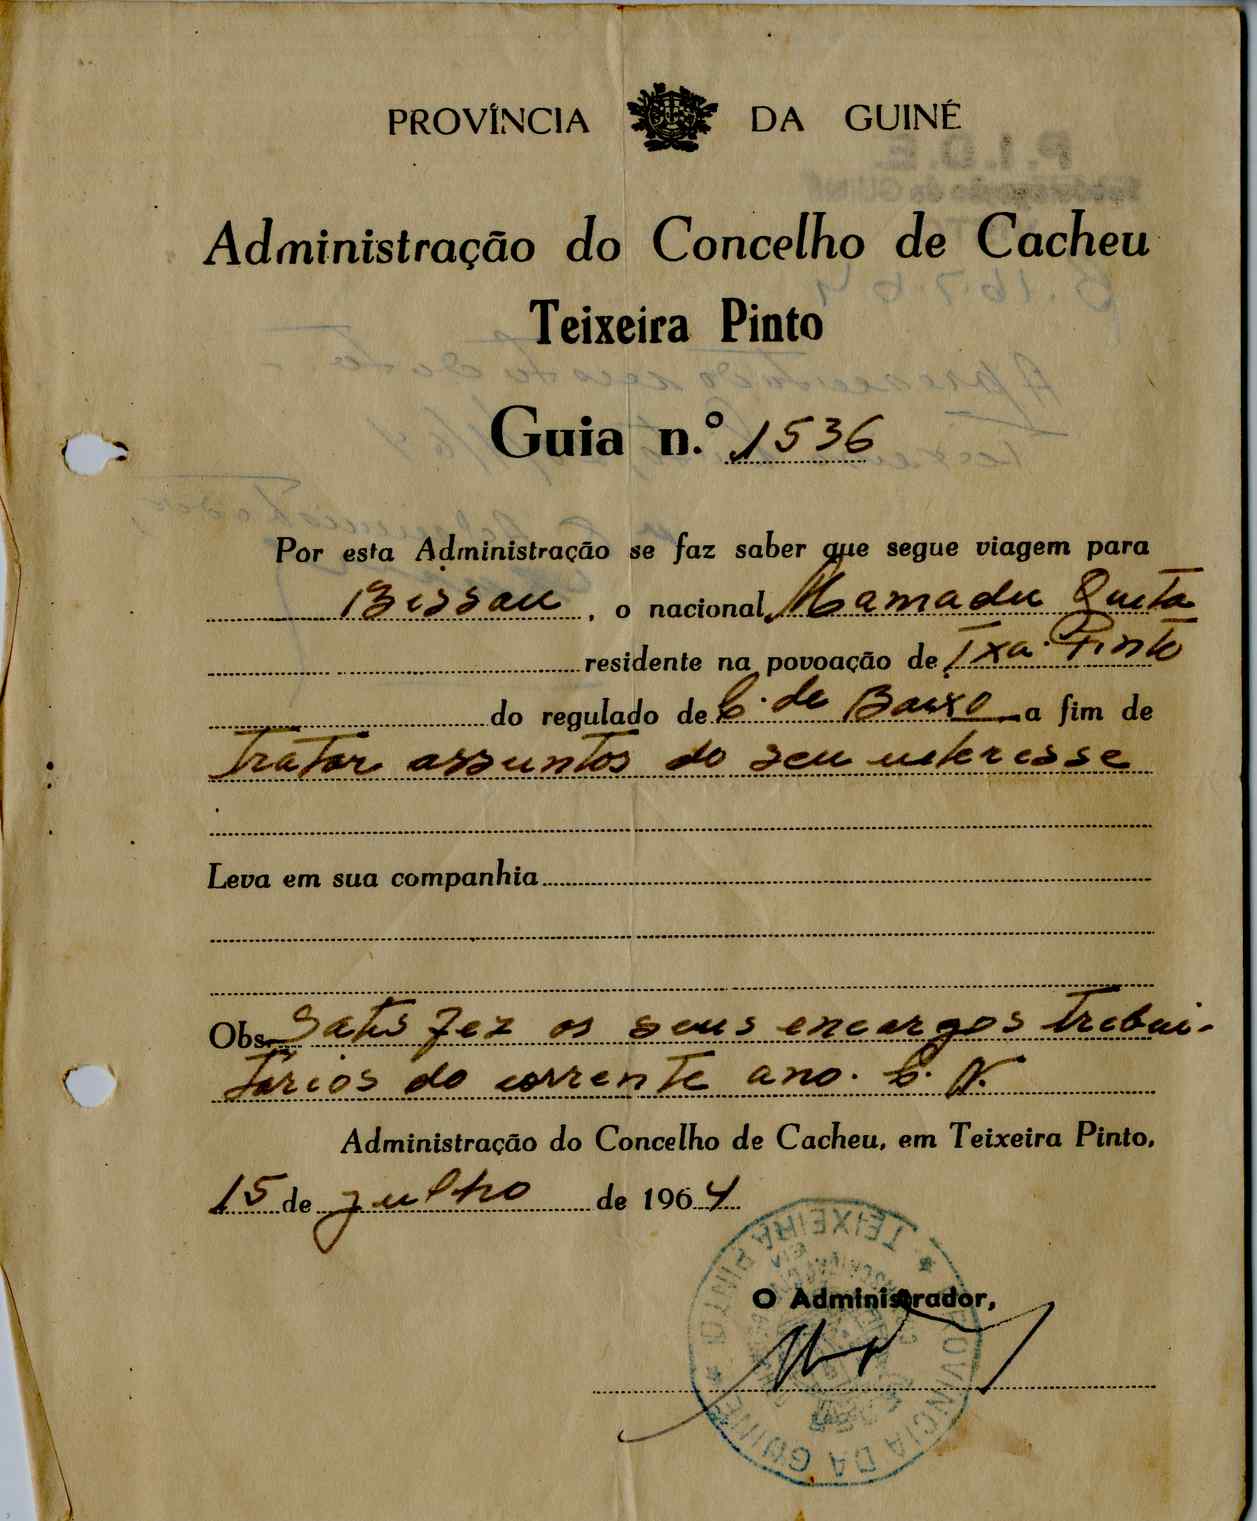 PROVÍNCIA DA GUINÉ
P.I.D.E.
Administração do Concelho de Cacheu
Teixeira Pinto
Guia n.º 1536
Por esta Administração se faz saber que segue viagem para
Bissau, o nacional Mamadu Queta
residente na povoação de Txa. Pinto
do regulado de C. de Baixo a fim de
tratar assuntos do seu interesse
Leva em sua companhia
Obs. Satisfez os seus encargos tribui-
tários do corrente ano. C. N.
Administração do Concelho de Cacheu, em Teixeira Pinto,
15 de julho de 1964
O Administrador,
PROVINCIA DA GUINÉ * TEIXEIRA PINTO *